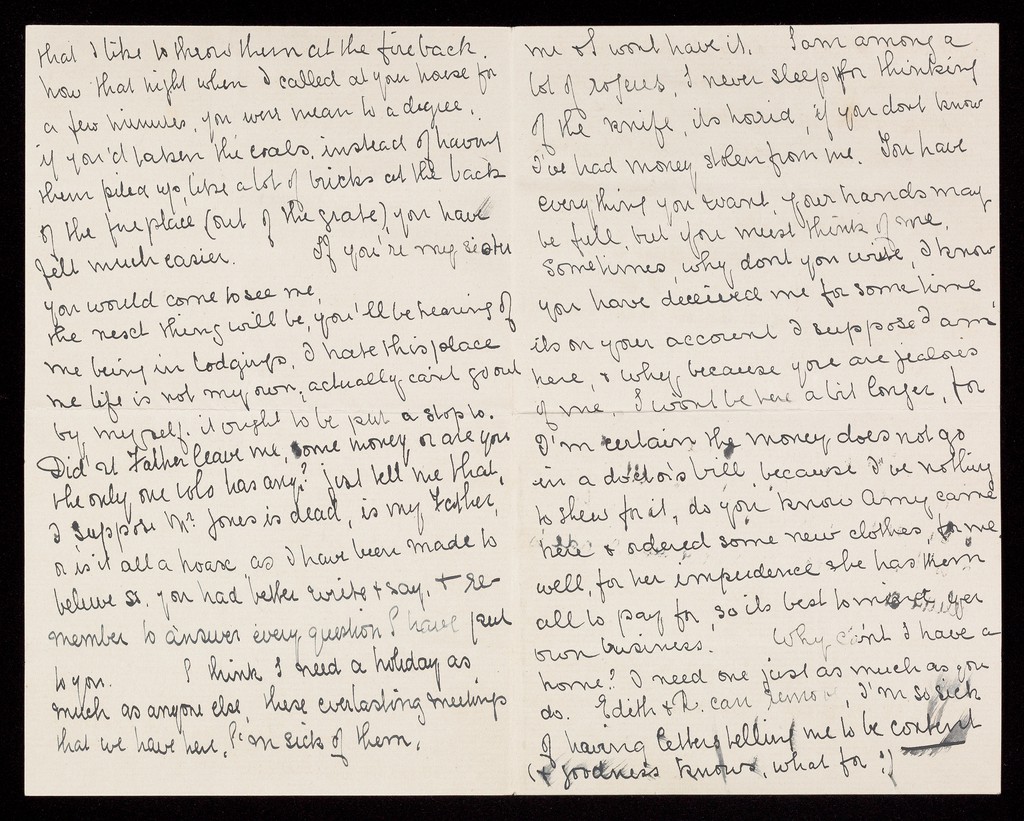 that I like to throw them at the fireback.
how that night when I called at your house for
a few minutes, you were mean to a degree,
if you'd taken the coals, instead of having
them piled up, like a lot of bricks at the back
of the fireplace (out of the grate) you have
felt much easier. If you're my sister
you would come to see me,
the next thing will be, you'll be hearing of
me being in lodgings, I hate this place
me life is not my own, actually can't go out
by myself. it ought to be put a stop to.
Did Father leave me, some money or are you
the only one who has any? just tell me that,
I suppose Mr. Jones is dead, is my Father,
or is it all a hoax as I have been made to
believe so. you had better write & say, & re-
member to answer every question I have put
to you. I think I need a holiday as
much as anyone else, these everlasting meetings
that we have here, I'm sick of them,
me & I wont have it. I am among a
lot of rogues, I never sleep for thinking
of the knife, its horrid, if you dont know
I've had money stolen from me. You have
everything you want, your hands may
be full, but you must think of me,
Sometimes, why dont you write, I know
you have deceived me for some time,
its on your account I suppose I am
here, & why, because you are jealous
of me, I wont be here a bit longer, for
I'm certain the money does not go
in a doctor's bill, because I've nothing
to shew for it, do you know Amy came
here & ordered some new clothes, for me
well, for her impudence she has them
all to pay for, so its best to mind yer
own business. Why can't I have a
home? I need one just as much as you
do. Edith & R. can remove, I'm so sick
of having letters telling me to be content
(& goodness knows, what for?)